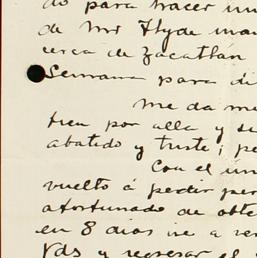 do para hacer un
de Mr Hyde man
cerca de Zacatlán
Semana para di
Me da me
bien por alla y se
abatido y triste; pe
Con el un
vuelto á pedir per
afortunado de obte
en 8 dias ire a ver
Vds y regresar el